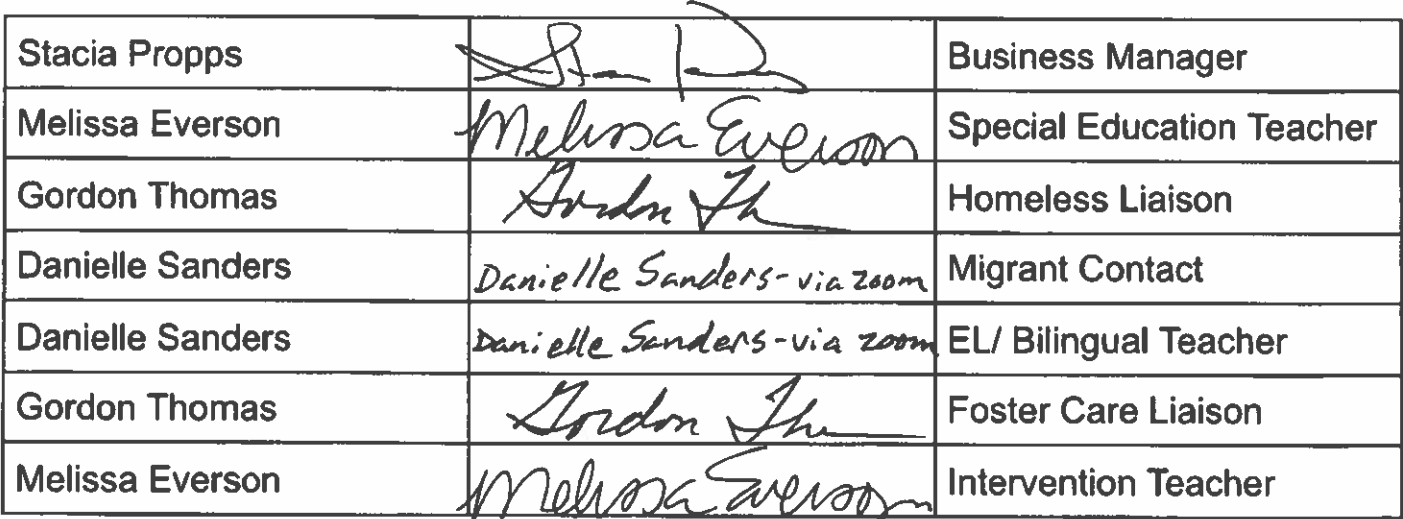 Stacia Propps Business Manager
Melissa Everson Melissa Everson Special Education Teacher
Gordon Thomas Gordon Th Homeless Liaison
Danielle Sanders Danielle Sanders - via zoom Migrant Contact
Danielle Sanders Danielle Sanders - via zoom EL/ Bilingual Teacher
Gordon Thomas Gordon Th Foster Care Liaison
Melissa Everson Melissa Everson Intervention Teacher